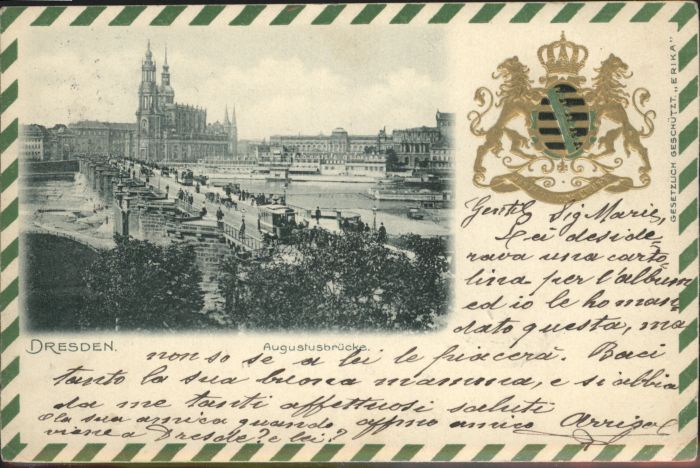 GESETZLICH GESCHÜTZT. „ERIKA"
DRESDEN.
Augustusbrücke.
Gentil Sig Marie,
Lei deside-
rava una carto-
lina per l'album
ed io le ho man-
dato questa, ma
non so se a lei le piacerà. Baci
tanto la sua buona mamma, e si abbia
da me tanti affettuosi saluti
e la sua amica quando affmo amico Arrigo
viene a Dresde? e lei?